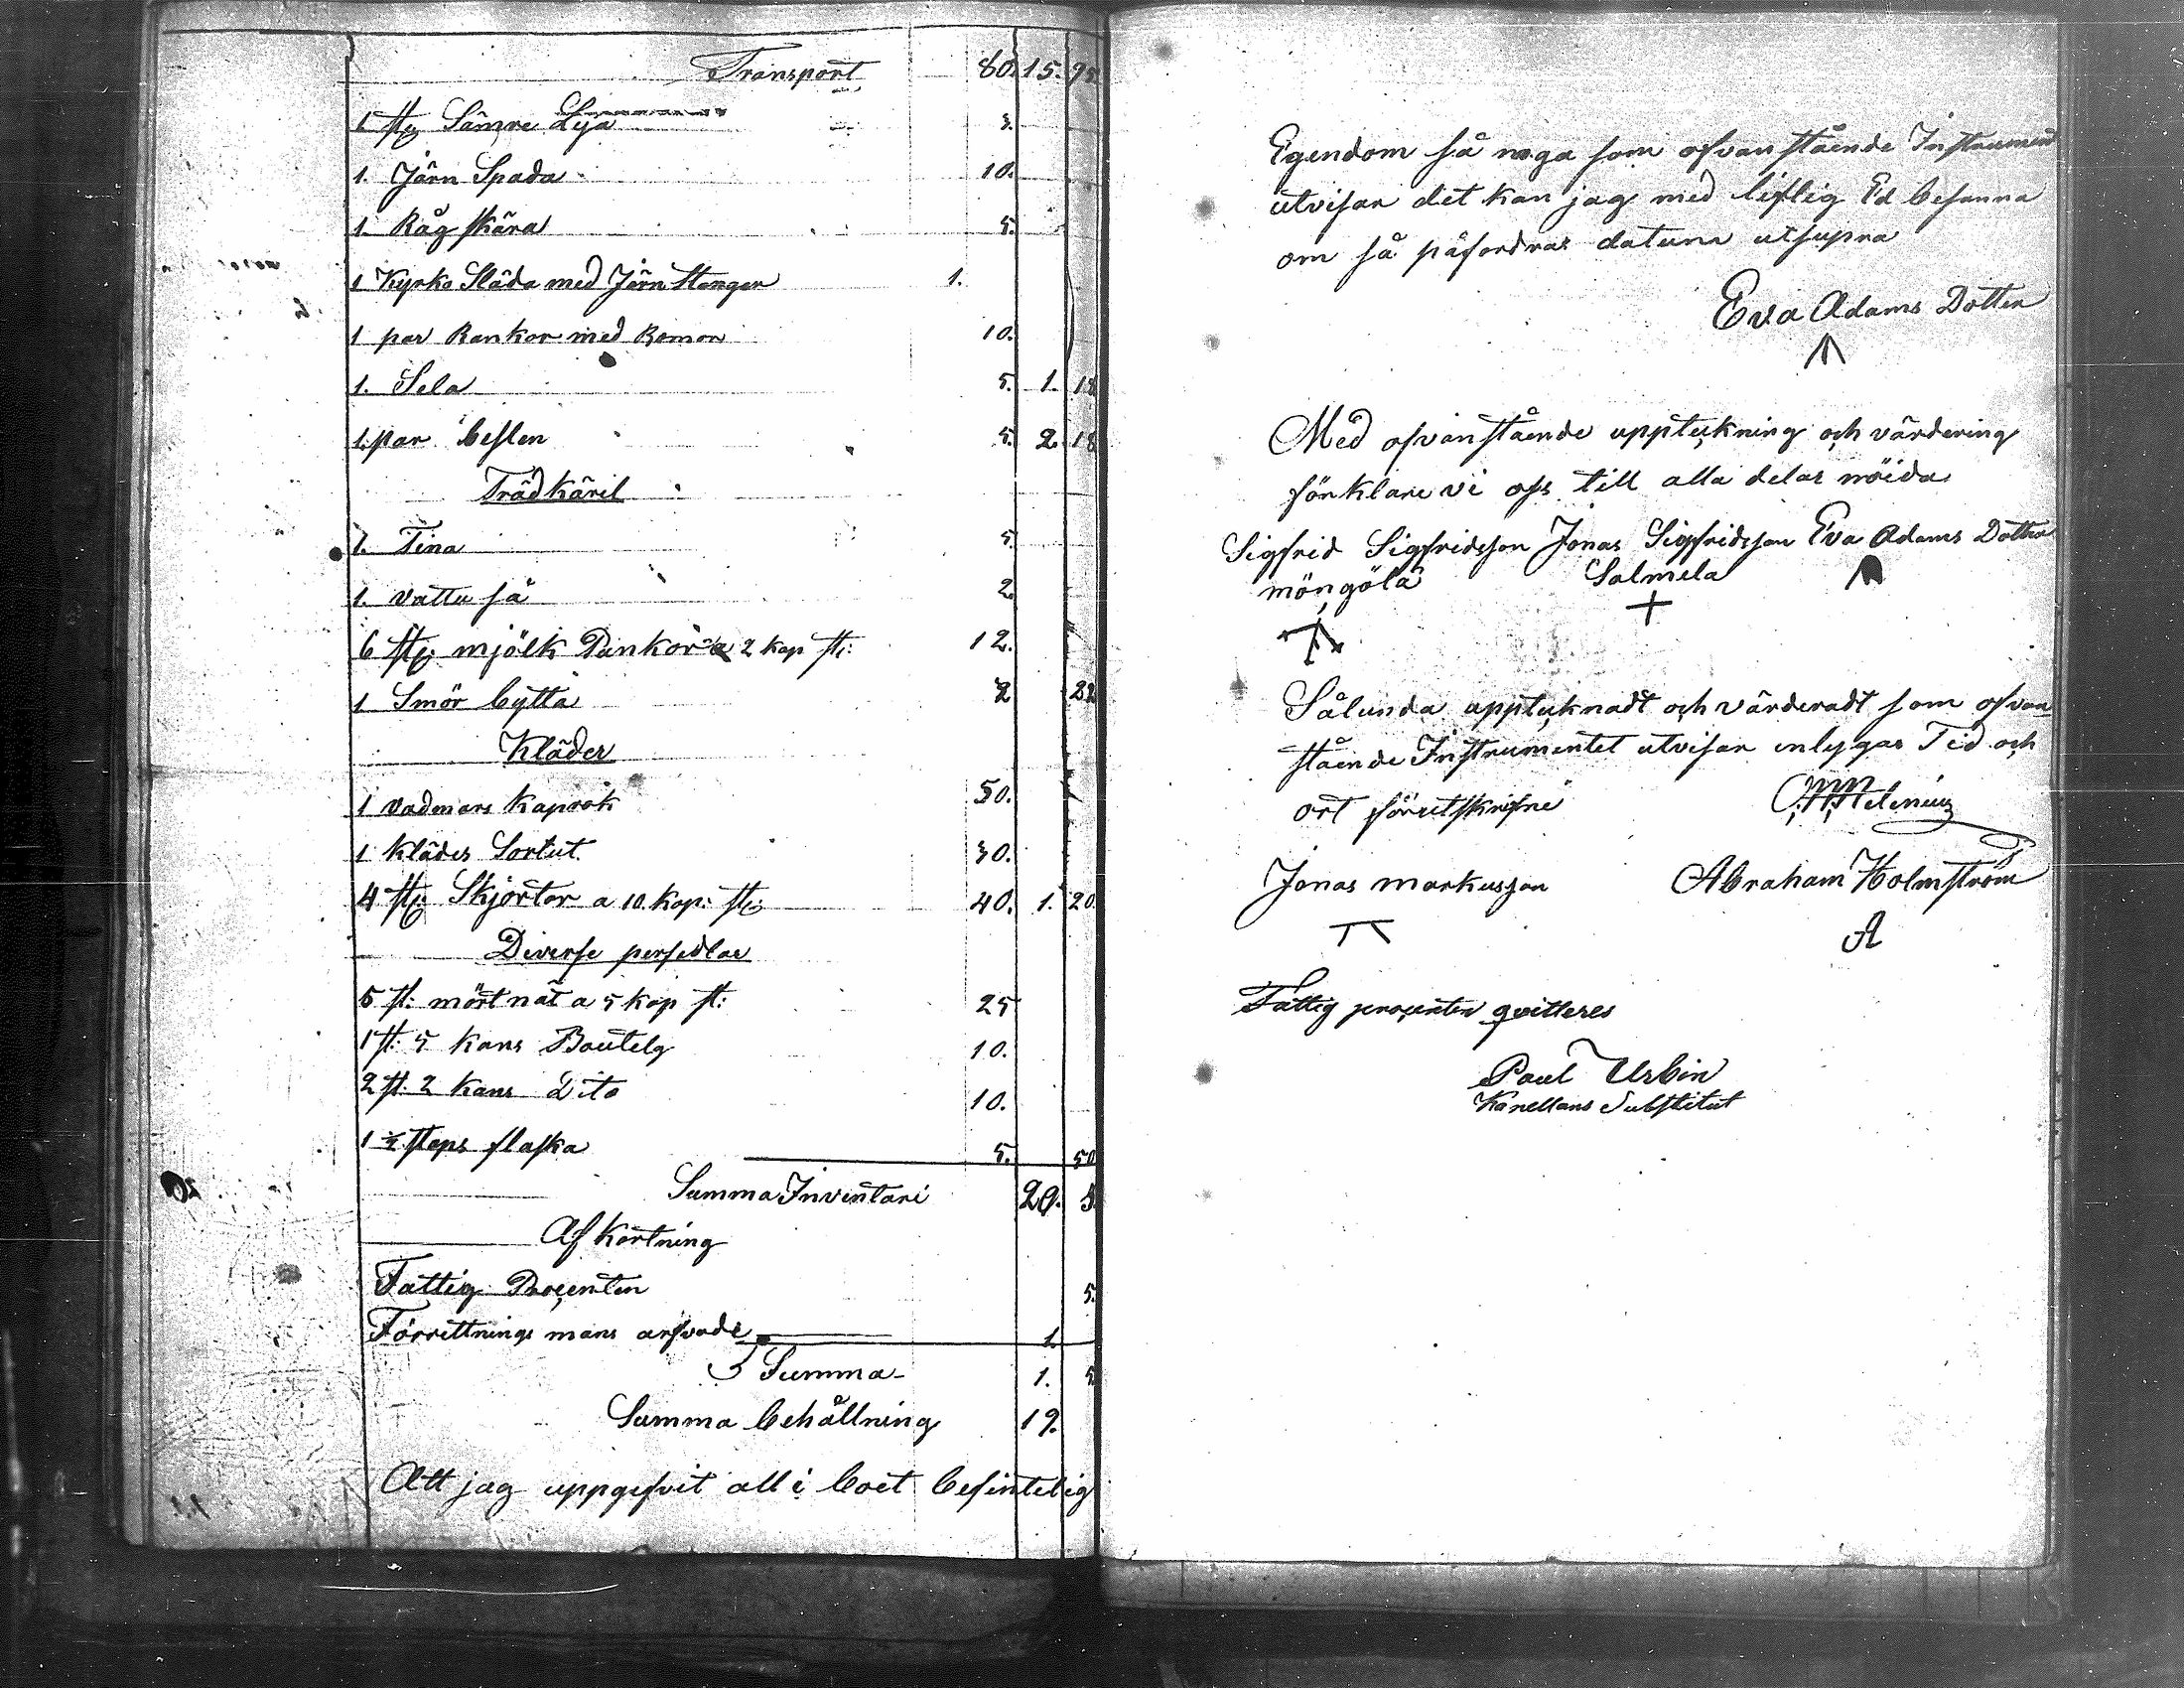 Transport 80. 15. 95
1 st: Sämre Lya 3.
1. Järn Spada 10.
1. Råg skära 5.
1 Kyrko Släda med Järn Stänger 1.
1 par Rankor med Romor 10.
1. Sela 5. 1. 18
1. par beslen 5. 2. 18
Trädkäril
1. Tina 5.
1. Vattu så 2.
6 st: mjölk Punkor a 2 kop st: 12.
1 Smör bytta 2 21
Kläder
1 Vadmars Kaprok 50.
1 Klädes Sortut 30.
4 st: Skjortor a 10. Kop: st: 40. 1. 20.
Diverse persedlar
5 st: mört nät a 5 kop st: 25
1 st: 5 kans Boutelg 10.
2 st: 2 kans Dito 10.
1 ½ stops flaska 5. 50
Summa Inventari 20. 5.
Afkortning
Fattig Procenten 5.
Förrittnings mans arfvode 1.
Summa 1. 5
Summa behållning 19.
Att jag uppgifvit all i boet befintelig
Egendom så noga som ofvanstående Instrument
utvisar det kan jag med liflig Ed besanna
om så påfordras datum utsupra
Eva Adams Dotter
Med ofvanstående uppteckning och värdering
förklare vi oss till alla delar nöida
Sigfrid Sigfridsson Jonas Sigfridsson Eva Adams Dotter
möngölä Salmela
Sålunda upptecknadt och värderadt som ofvan
stående Instrumentet utvisar enlygar Tid och
ort förutskrifne Helenius
Jonas Markusson Abraham Holmström
A
Fattig procenten qvitteres
Paul Urbin
Kapellans Substitut